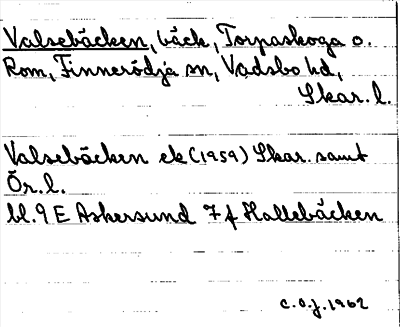 Valsebäcken, bäck, Torpaskoga o.
Rom, Finnerödja sn, Vadsbo hd,
Skar. l.
Valsebäcken ek (1959) Skar. samt
Ör. l.
bl. 9 E Askersund 7 f Hallebäcken
C.O.J. 1962